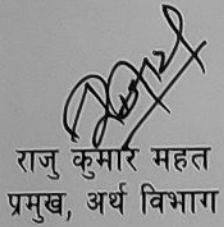 राजु कुमार महत
प्रमुख, अर्थ विभाग